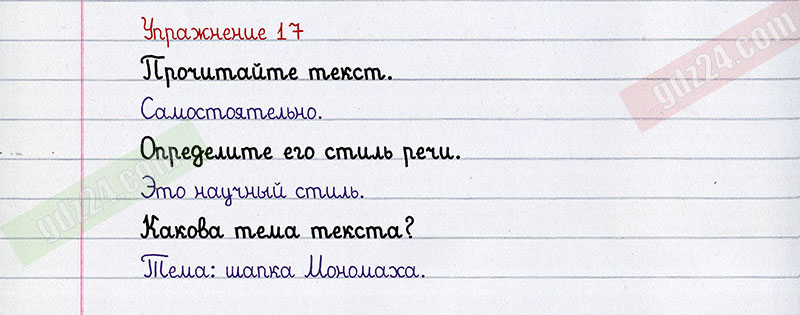 Упражнение 17
gdz24.com
Прочитайте текст.
Самостоятельно.
Определите его стиль речи.
Это научный стиль.
gdz24.com
Какова тема текста?
Тема: шапка Мономаха.